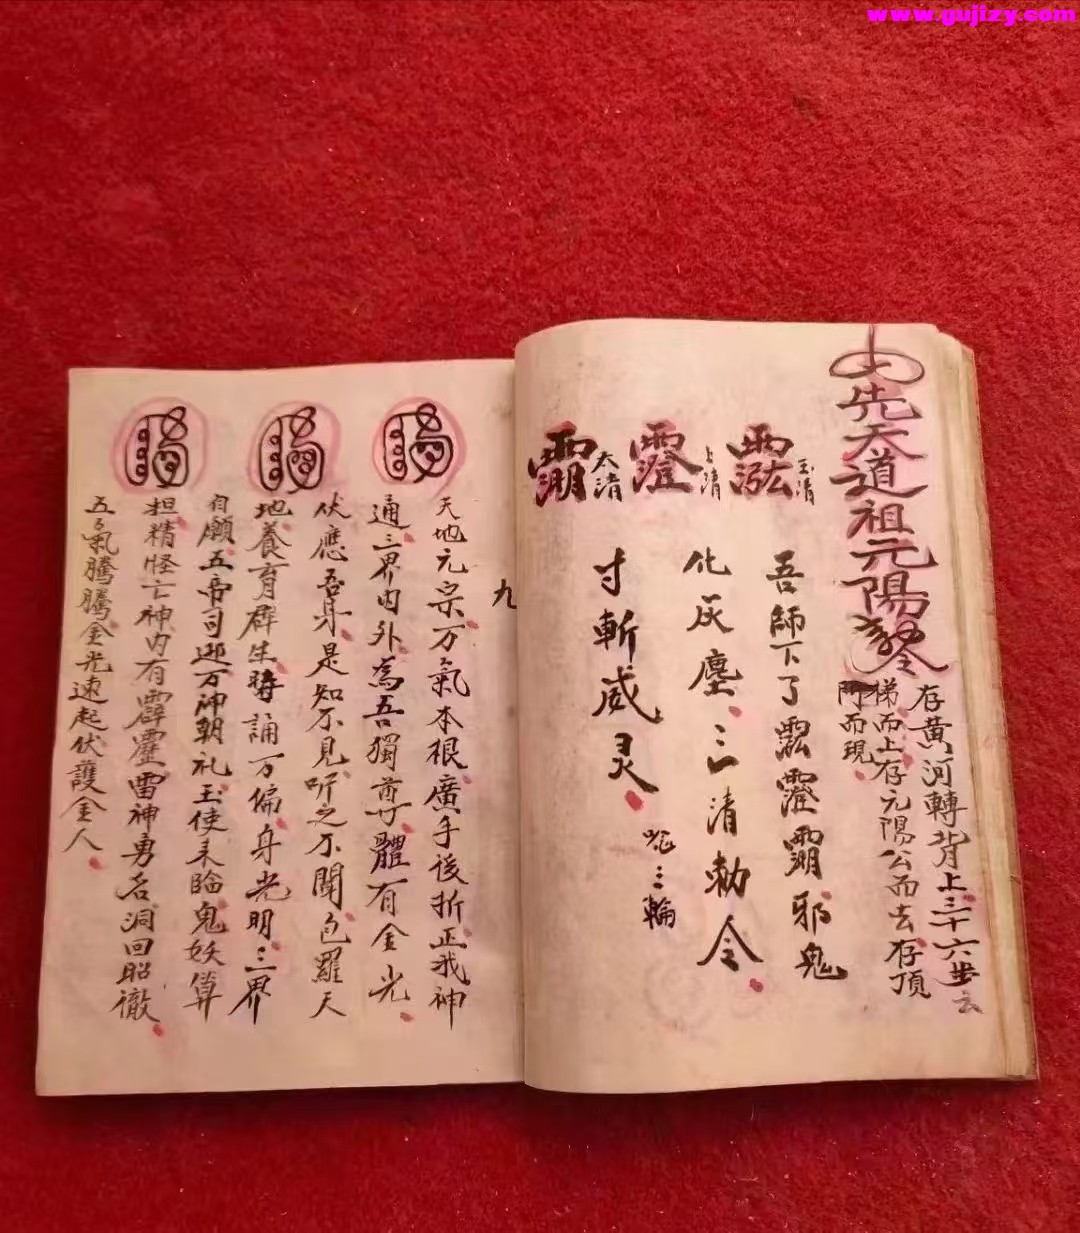 www.gujizy.com
先天道祖元陽
存黃河轉背上三十六步云
梯而上存元陽公而去存頂
門而現
玉清
上清
太清
吾師下了䨚霪霸邪鬼
化灰塵三清勅令
寸斬威灵
九
天地元宗万氣本根廣手後折正我神
通三界内外為吾獨尊體有金光
伏應吾身是知不見听之不聞包羅天
地養育群生時誦万偏身光明三界
自願五帝司迎万神朝礼玉使来臨鬼妖算
担精怪亡神内有霹靂雷神勇名洞回昭徹
五氣騰騰金光速起伏護金人